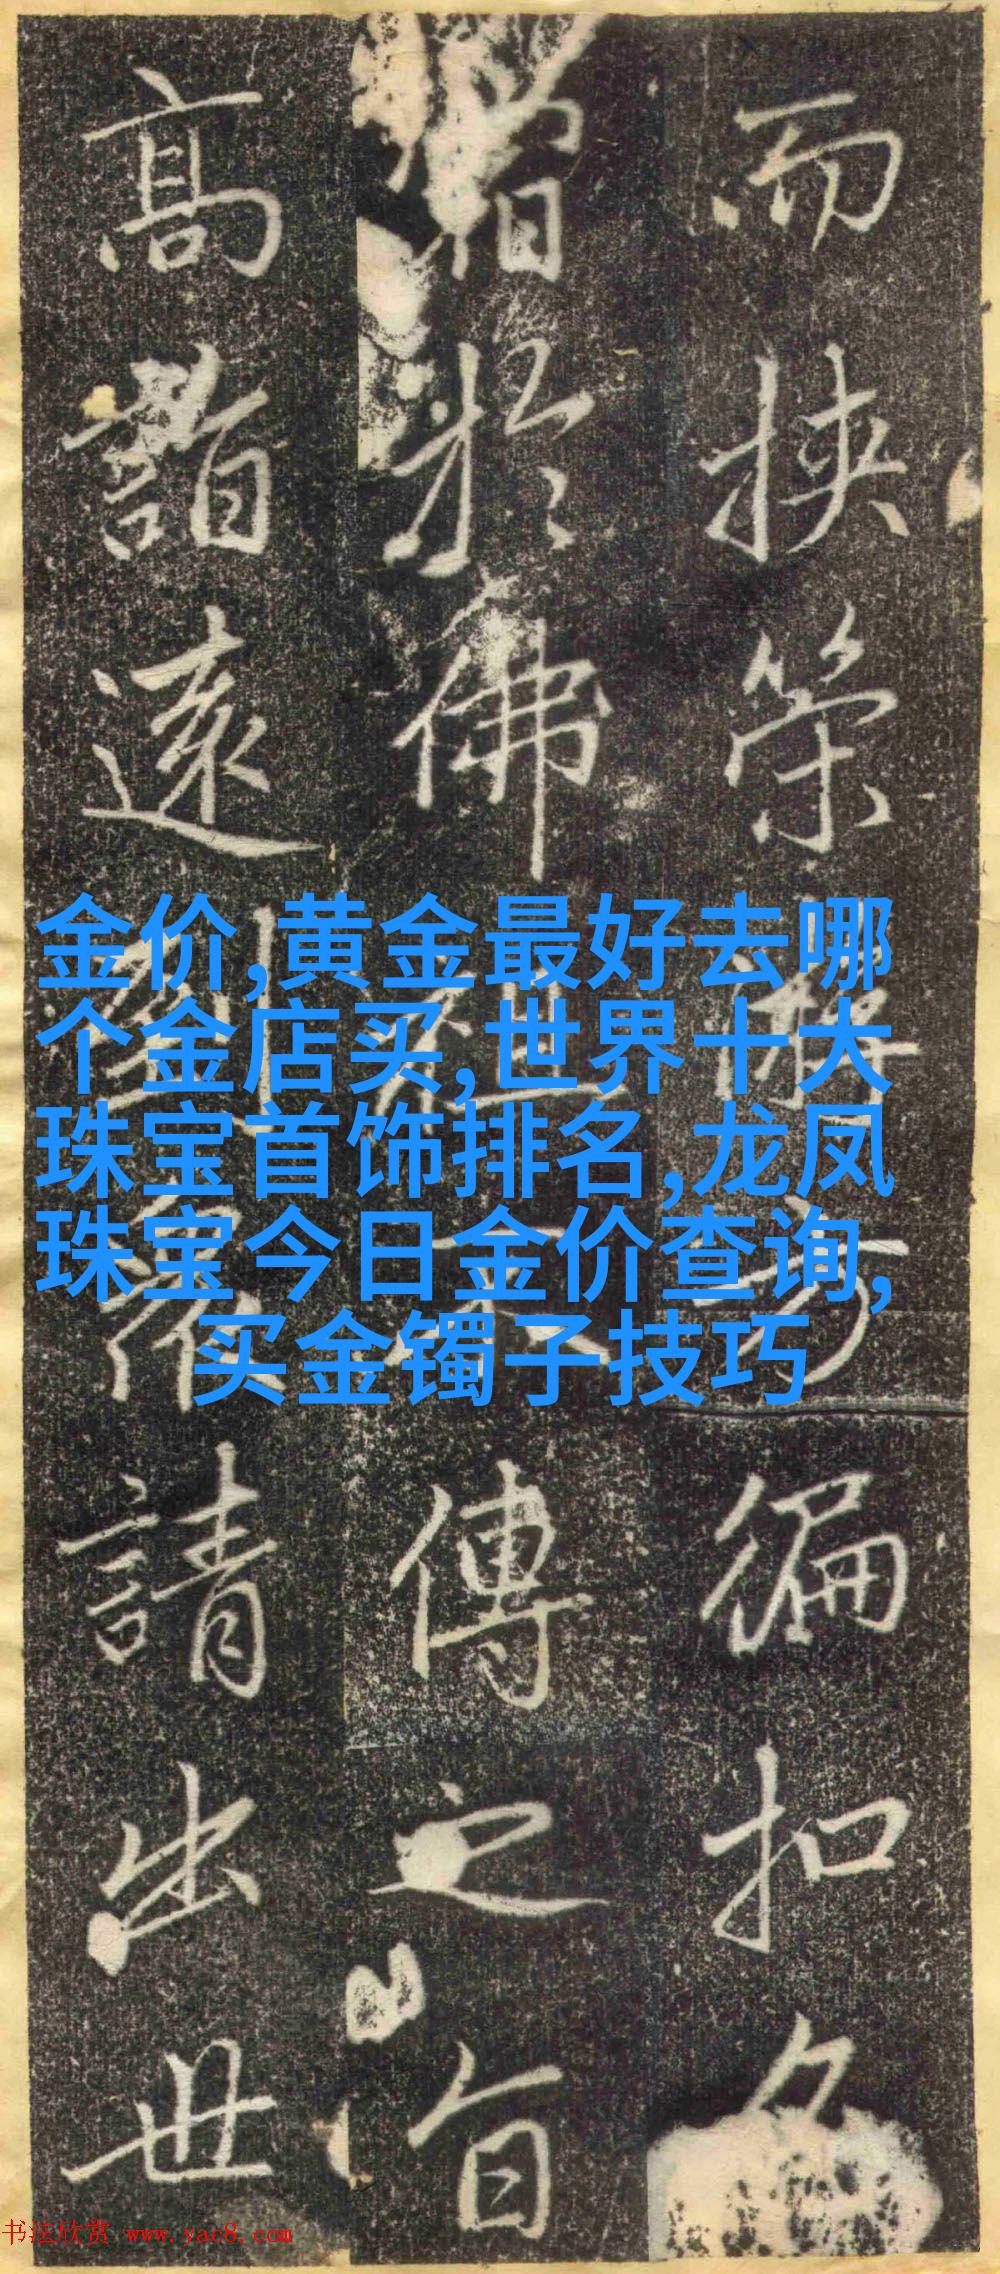 而挾游方徧扣
於佛祖不傳之旨
高遠請出世
金价,黄金最好去哪
个金店买,世界十大
珠宝首饰排名,龙凤
珠宝今日金价查询,
买金镯子技巧
书法欣赏 www.yac8.com